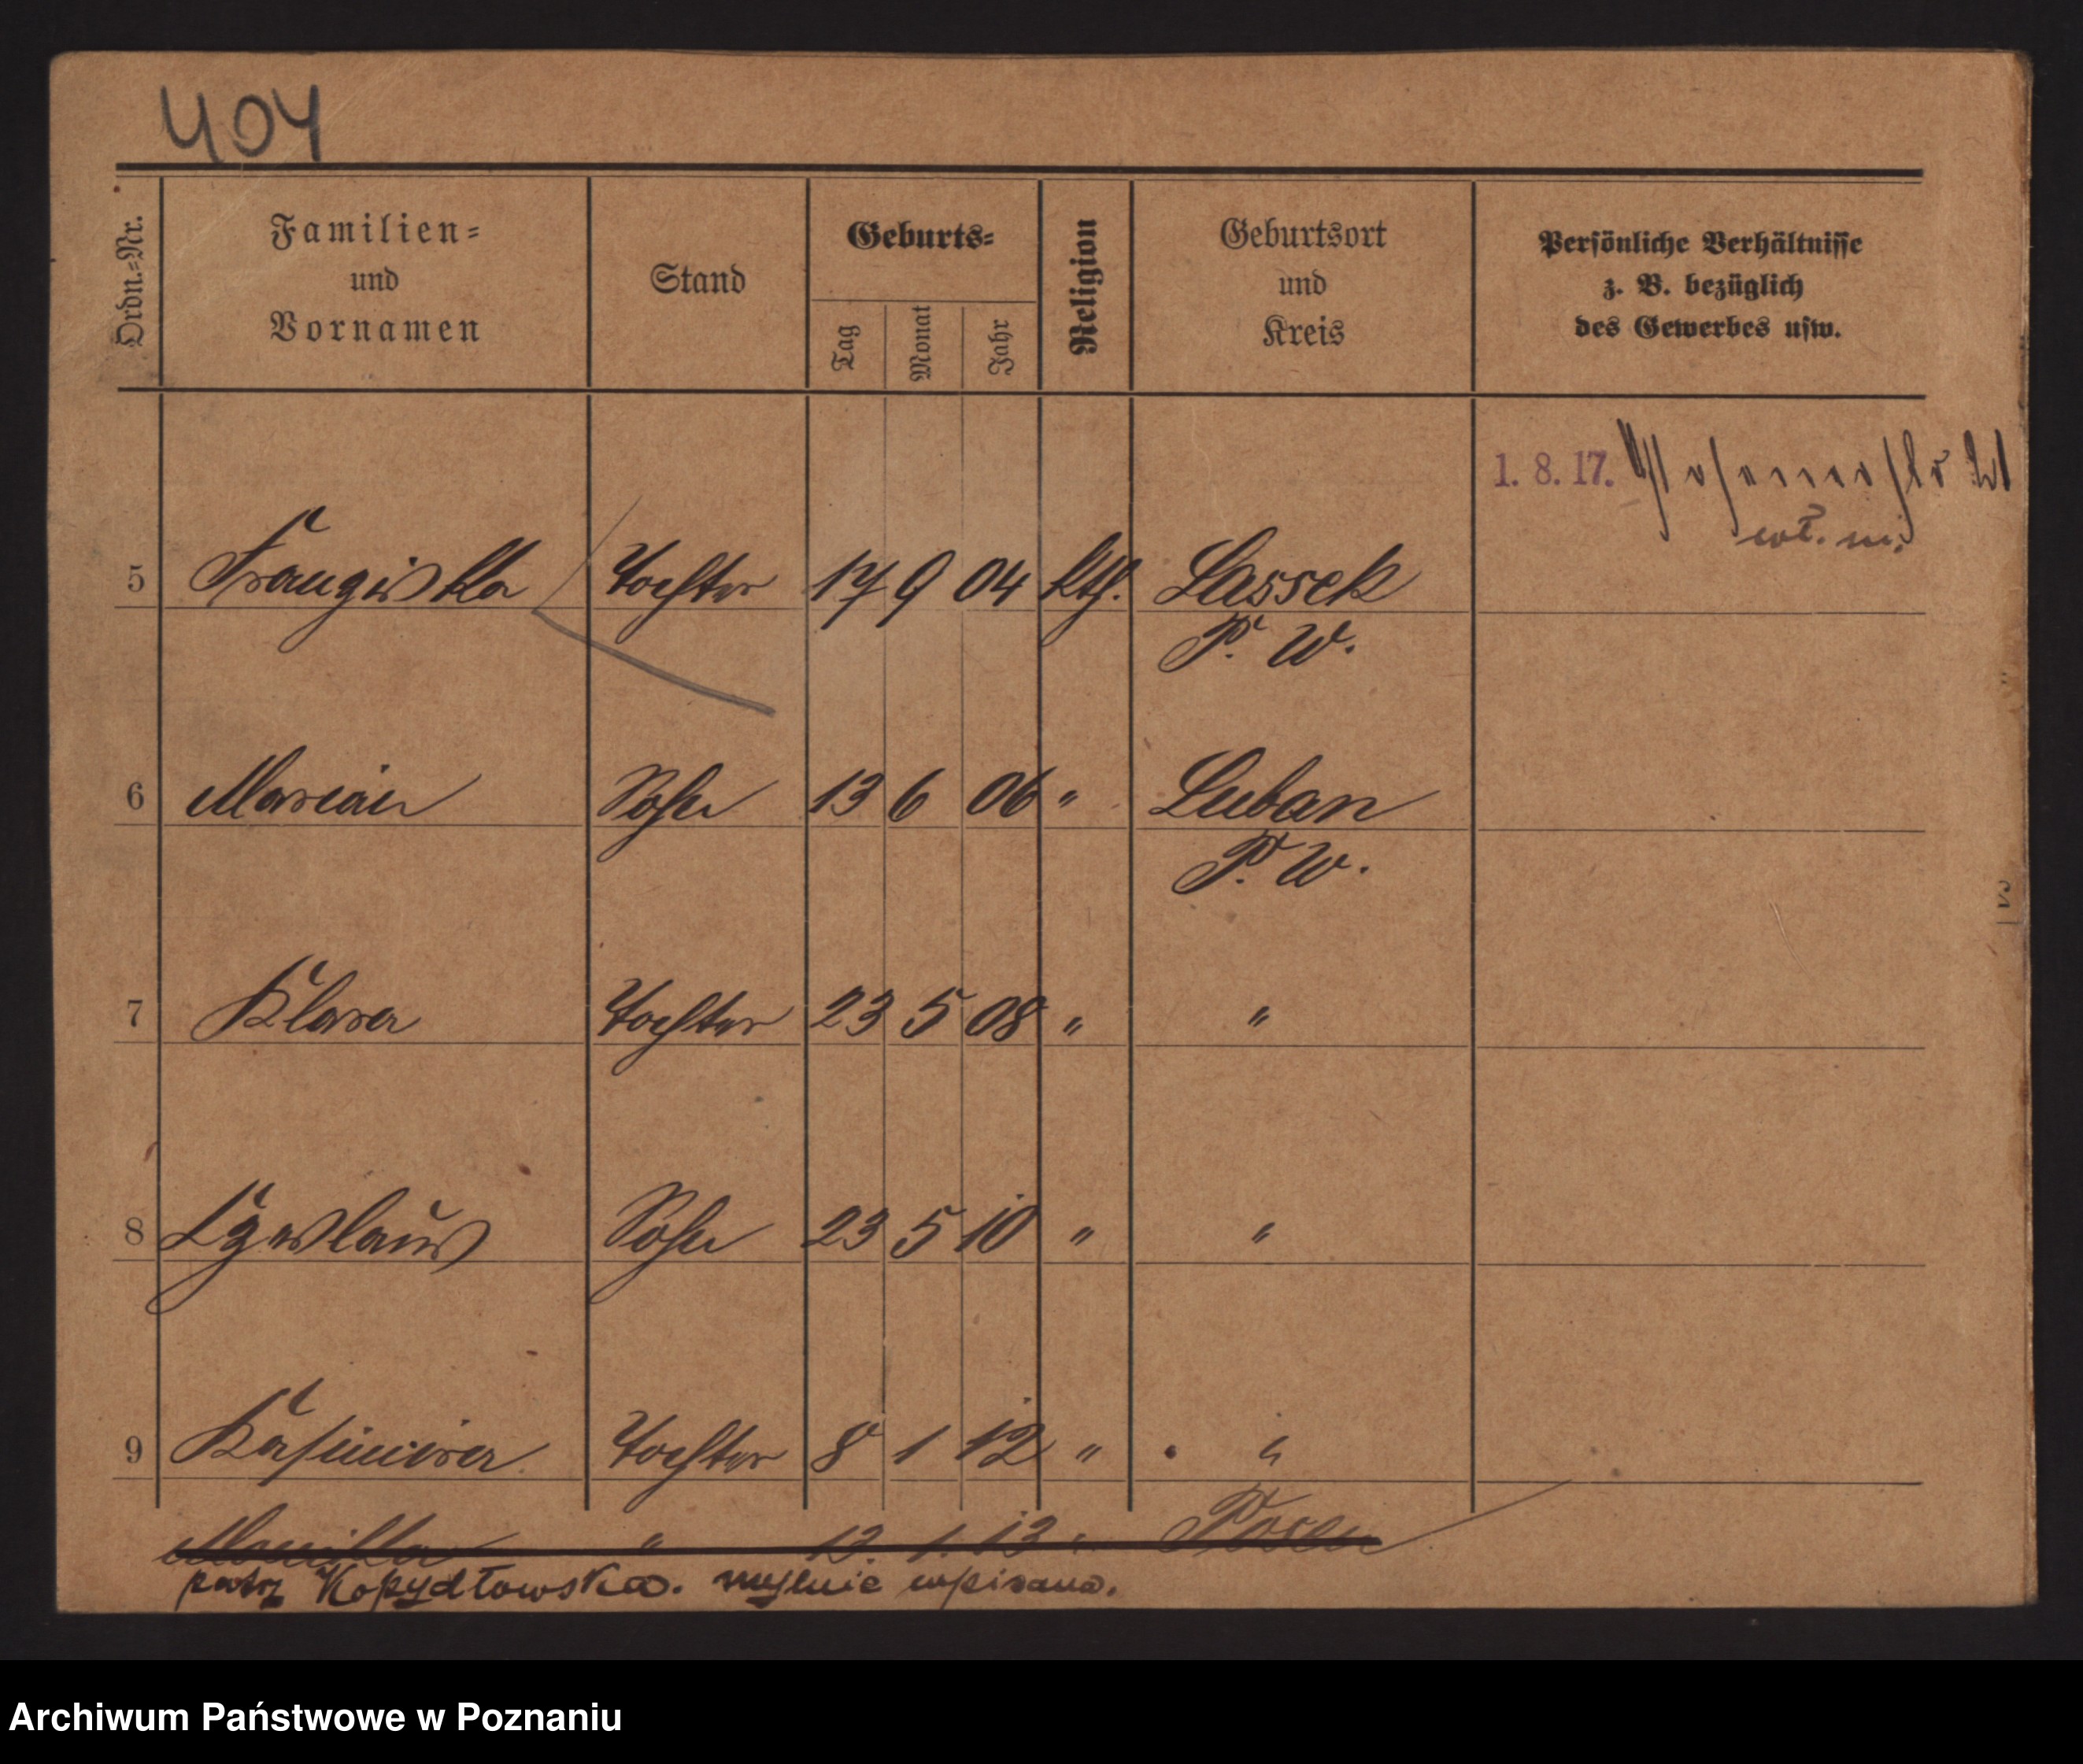 404
Ordn.=Nr.
Familien=
und
Vornamen
Stand
Geburts=
Tag
Monat
Jahr
Religion
Geburtsort
und
Kreis
Persönliche Verhältnisse
z. B. bezüglich
des Gewerbes usw.
1. 8. 17.
5 Franziska Tochter 17 9 04 kth. Lassek
P. W.
6 Marian Sohn 13 6 06 " Luban
P. W.
7 Klara Tochter 23 5 08 " "
8 Czeslaus Sohn 23 5 10 " "
9 Kasimira Tochter 8 1 12 " "
" 12. 1. 13 " Posen
patrz Kopydłowska. mylnie wpisana.
Archiwum Państwowe w Poznaniu